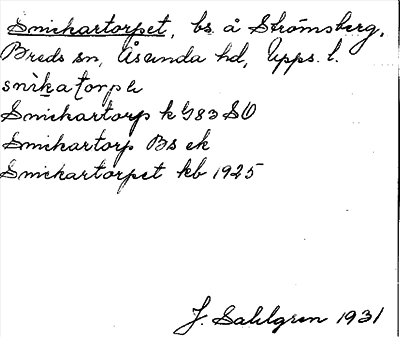 Snickartorpet, bs. å Strömsberg,
Breds sn, Åsunda hd, Upps. l.
snìkatorpə
Snickartorp k 1783 SO
Snickartorp Bs ek
Snickartorpet kb 1925
J. Sahlgren 1931